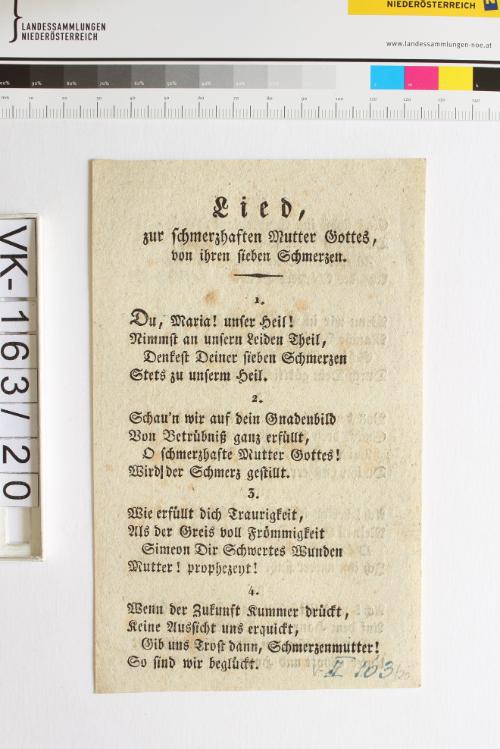 LANDESSAMMLUNGEN
NIEDERÖSTERREICH
NIEDERÖSTERREICH
www.landessammlungen-noe.at
VK-163/20
Lied,
zur schmerzhaften Mutter Gottes,
von ihren sieben Schmerzen.
1.
Du, Maria! unser Heil!
Nimmst an unsern Leiden Theil,
Denkest Deiner sieben Schmerzen
Stets zu unserm Heil.
2.
Schau'n wir auf dein Gnadenbild
Von Betrübniß ganz erfüllt,
O schmerzhafte Mutter Gottes!
Wird der Schmerz gestillt.
3.
Wie erfüllt dich Traurigkeit,
Als der Greis voll Frömmigkeit
Simeon Dir Schwertes Wunden
Mutter! prophezeyt!
4.
Wenn der Zukunft Kummer drückt,
Keine Aussicht uns erquickt,
Gib uns Trost dann, Schmerzenmutter!
So sind wir beglückt.
163/20